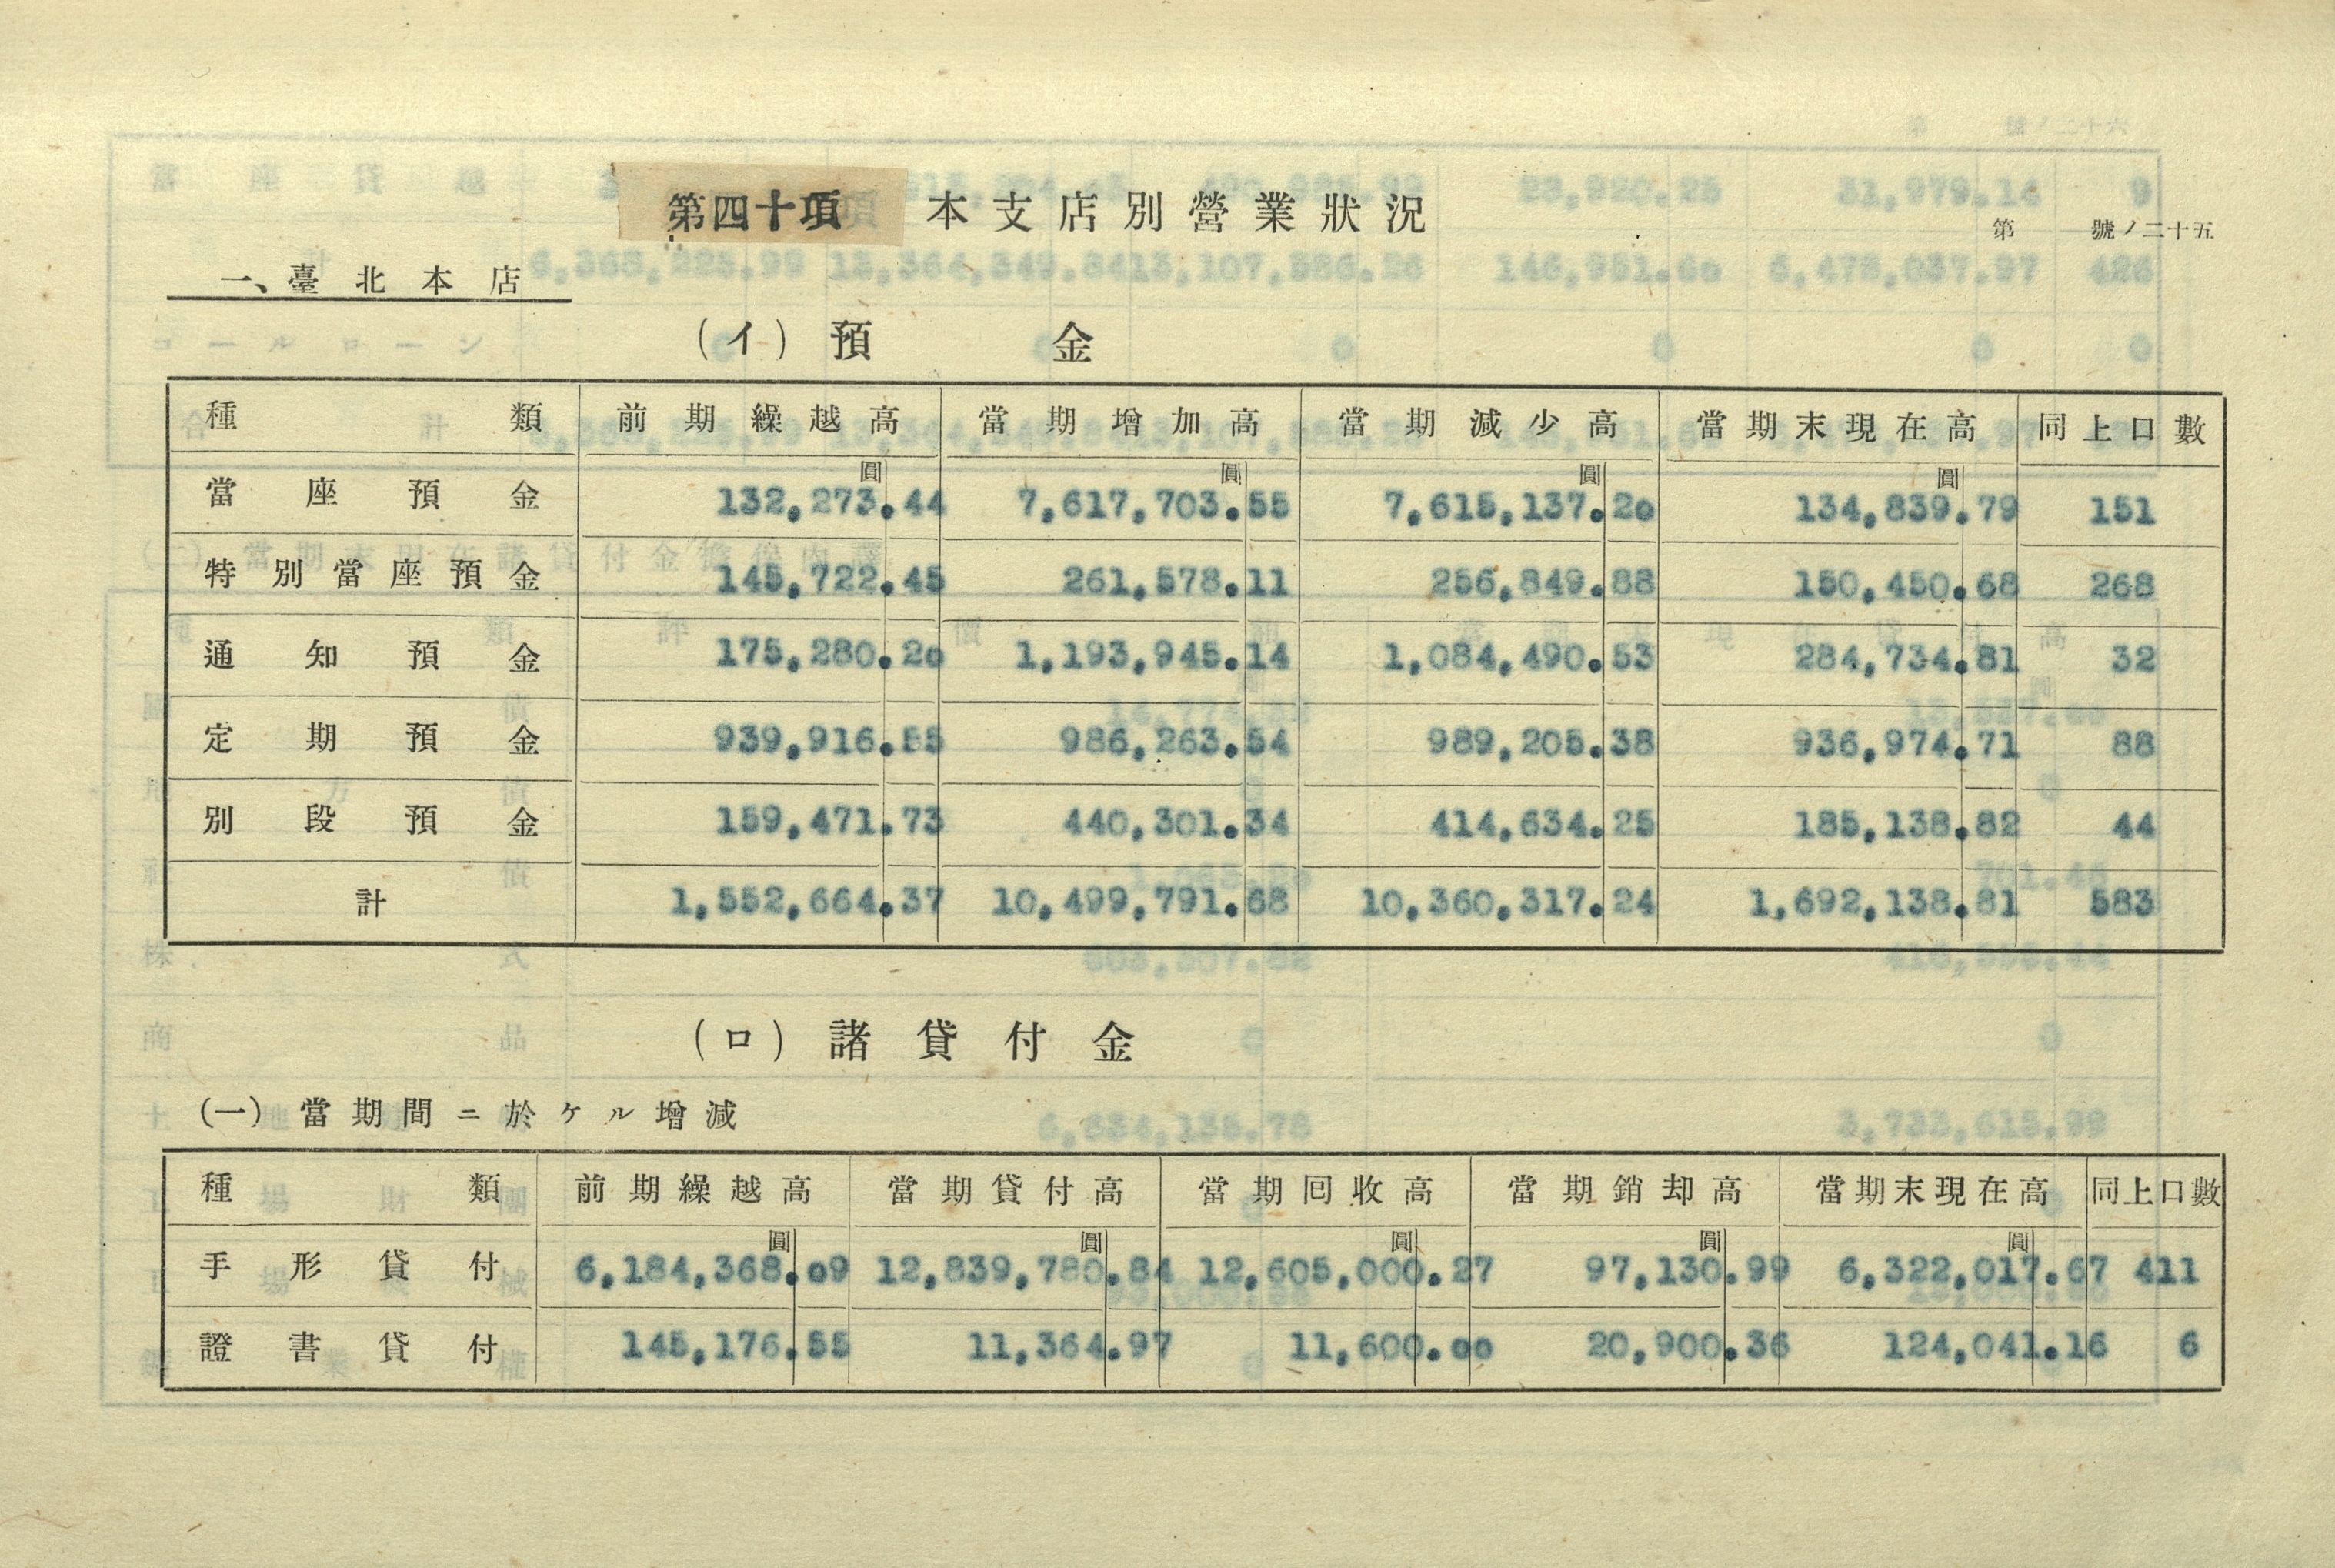 第四十項 本支店別營業狀況
第 號ノ二十五
一、臺北本店
(イ) 預金
種類 前期繰越高 當期增加高 當期減少高 當期末現在高 同上口數
圓 圓 圓 圓
當座預金 132,273.44 7,617,703.55 7,615,137.20 134,839.79 151
特別當座預金 145,722.45 261,578.11 256,849.88 150,450.68 268
通知預金 175,280.20 1,193,945.14 1,084,490.53 284,734.81 32
定期預金 939,916.55 986,263.54 989,205.38 936,974.71 88
別段預金 159,471.73 440,301.34 414,634.25 185,138.82 44
計 1,552,664.37 10,499,791.68 10,360,317.24 1,692,138.81 583
(ロ) 諸貸付金
(一) 當期間ニ於ケル增減
種類 前期繰越高 當期貸付高 當期囘收高 當期銷却高 當期末現在高 同上口數
圓 圓 圓 圓 圓
手形貸付 6,184,368.09 12,839,780.84 12,605,000.27 97,130.99 6,322,017.67 411
證書貸付 145,176.55 11,364.97 11,600.00 20,900.36 124,041.16 6